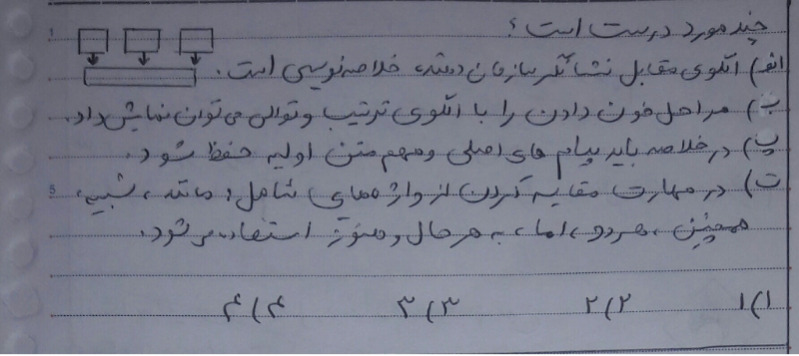 چند مورد درست است؟
الف) الگوی مقابل نشانگر سازمان دهنده خلاصه نویسی است.
ب) مراحل خون دادن را با الگوی ترتیب و توالی می توان نمایش داد.
پ) در خلاصه باید پیام های اصلی و مهم متن اولیه حفظ شود.
ت) در مهارت مقایسه کردن از واژه هایی شامل: مانند، شبیه،
همچنین، هر دو، اما، به هر حال و هنوز استفاده می شود.
۱) ۱ ۲) ۲ ۳) ۳ ۴) ۴